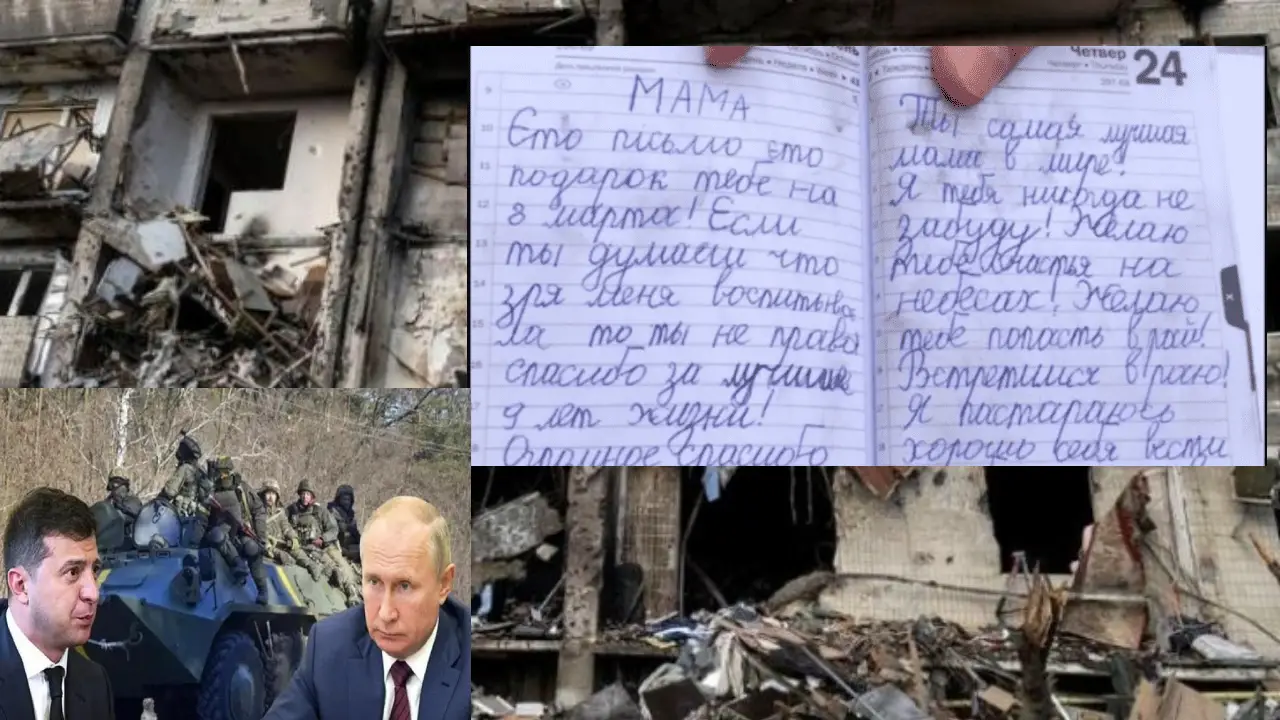 МАМА
Єто пісьмо єто
подарок тебе на
8 марта! Если
ты думаеш что
зря меня воспитыва
ла то ты не права
спасибо за лучшие
9 лет жизни!
Огромное спасибо
Четвер
24
Ты самая лучшая
мама в мире!
Я тебя никогда не
забуду! Желаю
тебе счастья на
небесах! Желаю
тебе попасть в рай!
Встретимся в раю!
Я пастараюсь
хорошо себя вести